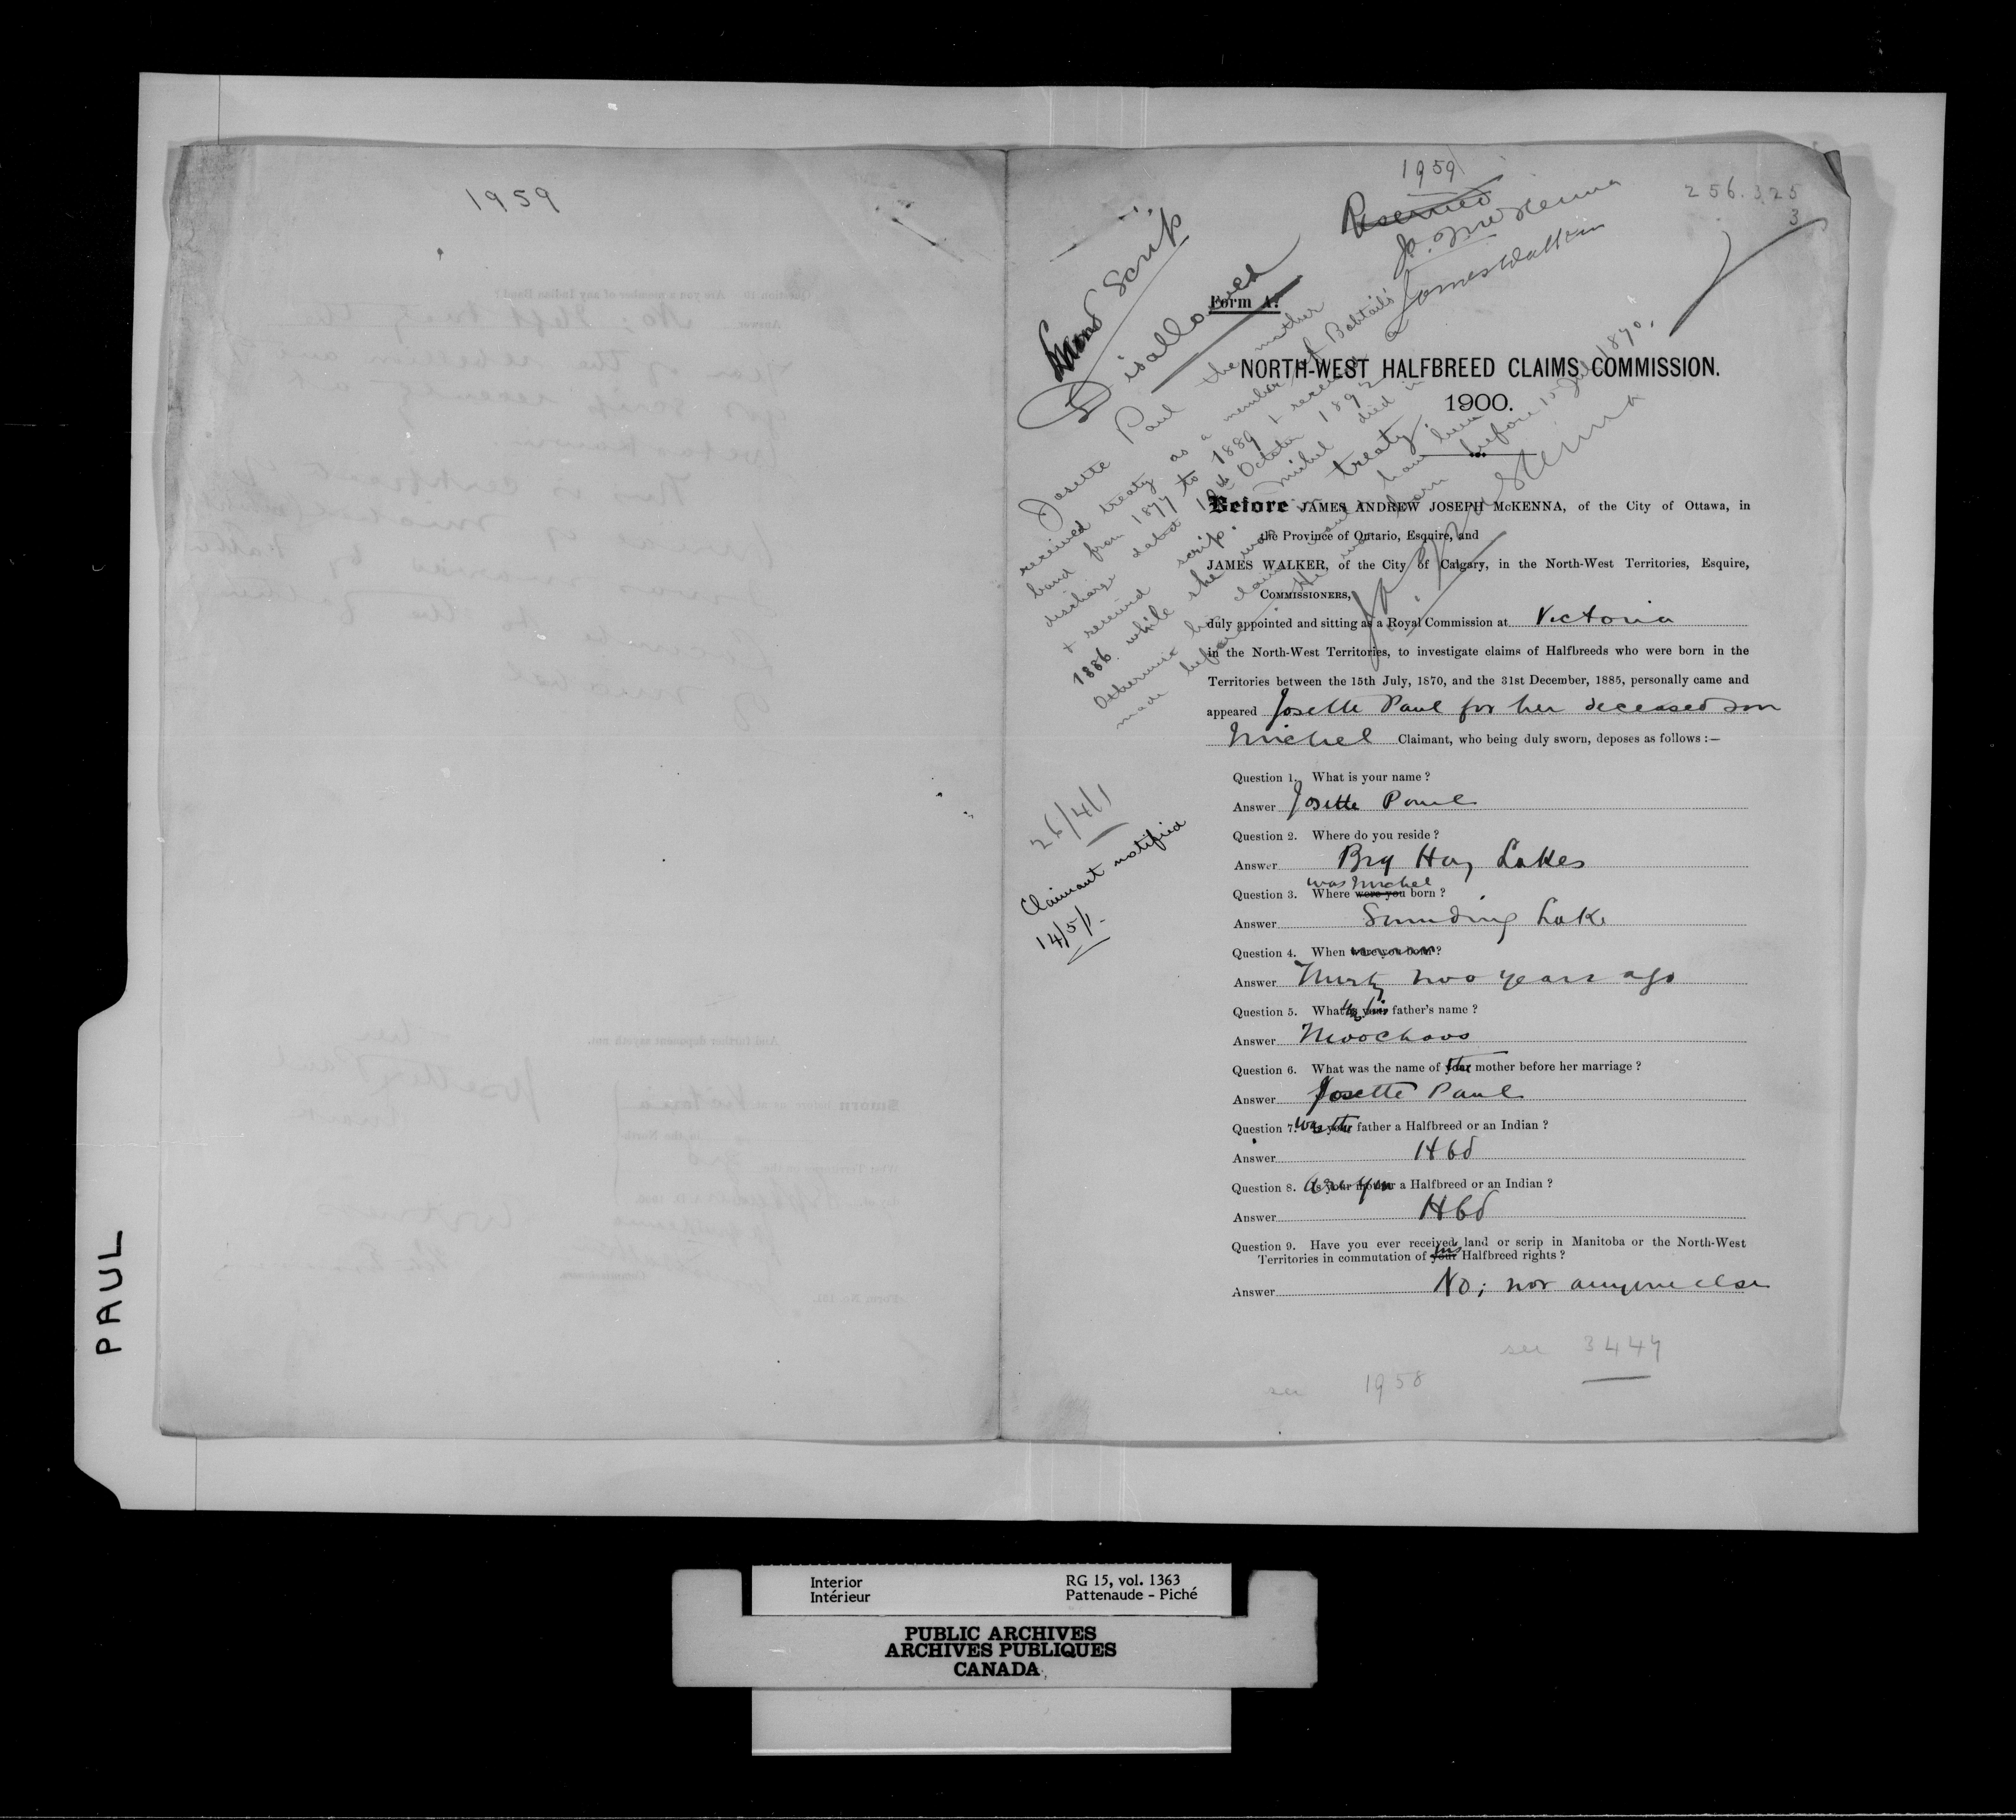 1959
PAUL
1959
256.325
3
Reserved
J. A. McKenna
James Walker
Land Scrip
Disallowed
Form A.
NORTH-WEST HALFBREED CLAIMS COMMISSION.
1900.
Josette Paul the mother
received treaty as a member of Bobtail's
band from 1877 to 1889 & received a
discharge dated 18th October 1892
& received scrip. Michel died in
1886 while she was in treaty.
Otherwise his claim would have been
made before He was born before 15 July 1870.
J. A. McKenna
Before JAMES ANDREW JOSEPH McKENNA, of the City of Ottawa, in
the Province of Ontario, Esquire, and
JAMES WALKER, of the City of Calgary, in the North-West Territories, Esquire,
COMMISSIONERS,
duly appointed and sitting as a Royal Commission at Victoria
in the North-West Territories, to investigate claims of Halfbreeds who were born in the
Territories between the 15th July, 1870, and the 31st December, 1885, personally came and
appeared Josette Paul for her deceased son
Michel Claimant, who being duly sworn, deposes as follows :—
Question 1. What is your name ?
Answer Josette Paul
26/4/1
Claimant notified
14/5/1-
Question 2. Where do you reside ?
Answer Big Hay Lakes
was Michel
Question 3. Where were you born ?
Answer Sounding Lake
Question 4. When were you born ?
Answer Thirty two years ago
Question 5. What is his father's name ?
Answer Moochoos
Question 6. What was the name of the mother before her marriage ?
Answer Josette Paul
Question 7. Was the father a Halfbreed or an Indian ?
Answer Hbd
Question 8. Are you a Halfbreed or an Indian ?
Answer Hbd
Question 9. Have you ever received land or scrip in Manitoba or the North-West
Territories in commutation of his Halfbreed rights ?
Answer No; nor anyone else
see 3447
see 1958
Interior
Intérieur
RG 15, vol. 1363
Pattenaude - Piché
PUBLIC ARCHIVES
ARCHIVES PUBLIQUES
CANADA